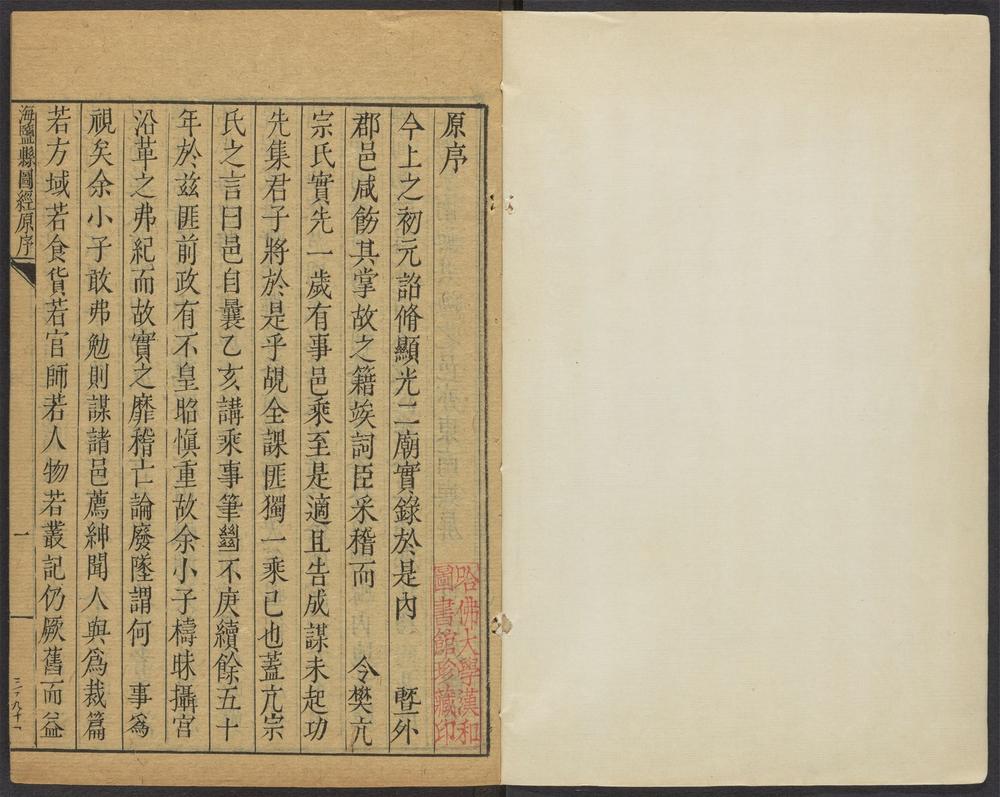 原序
今上之初元詔脩顯光二廟實錄於是內 曁外
郡邑咸飭其掌故之籍竢詞臣采稽而 令樊亢
宗氏實先一歲有事邑乘至是適且告成謀未起功
先集君子將於是乎覘全課匪獨一乘已也蓋亢宗
氏之言曰邑自曩乙亥講乘事筆㡭不庚續餘五十
年於兹匪前政有不皇昭慎重故余小子檮昧攝宮
沿革之弗紀而故實之靡稽亡論廢墜謂何 事爲
視矣余小子敢弗勉則謀諸邑薦紳聞人與爲裁篇
若方域若食貨若官師若人物若叢記仍厥舊而益
海鹽縣圖經原序
一
哈佛大學漢和
圖書館珍藏印